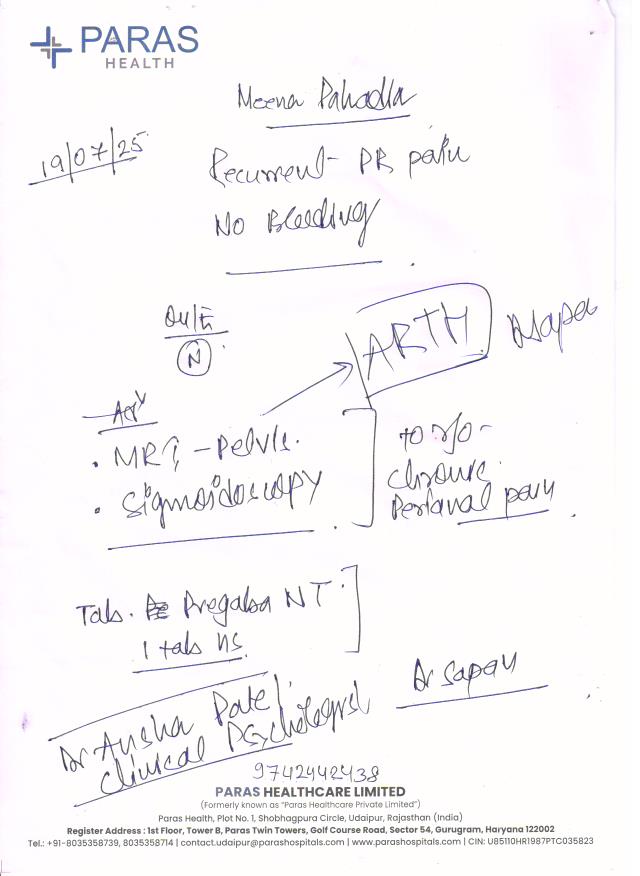 PARAS
HEALTH
Meena Pahadia
19/07/25
Recurrent PR pain
No Bleeding
On/E
N
ARTH
Adv
• MRI - Pelvis.
• Sigmoidoscopy
to r/o -
chronic
Perianal pain
Tab. Pregaba NT
1 tab hs
Dr Sapan
Dr Ansha Patel
Clinical Psychologist
9742442438
PARAS HEALTHCARE LIMITED
(Formerly known as "Paras Healthcare Private Limited")
Paras Health, Plot No. 1, Shobhagpura Circle, Udaipur, Rajasthan (India)
Register Address : 1st Floor, Tower B, Paras Twin Towers, Golf Course Road, Sector 54, Gurugram, Haryana 122002
Tel.: +91-8035358739, 8035358714 | contact.udaipur@parashospitals.com | www.parashospitals.com | CIN: U85110HR1987PTC035823